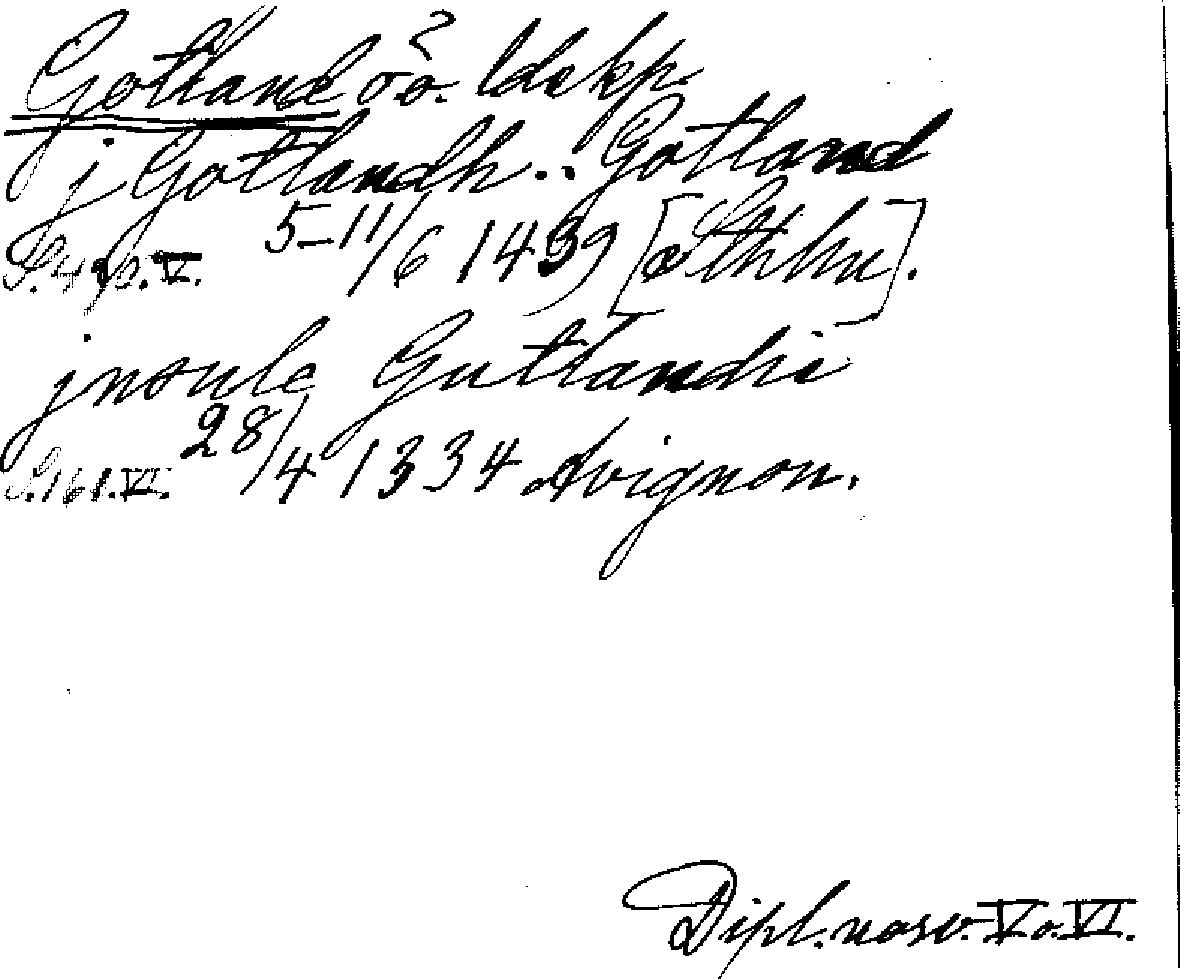 Gotland ö. o. ldskp.
j Gotlandh .. Gotland
S. 490. V. 5–11/6 1439 [Sthlm].
jnsule Gutlandie
S. 161. VI. 28/4 1334 Avignon.
Dipl. norv. V o. VI.